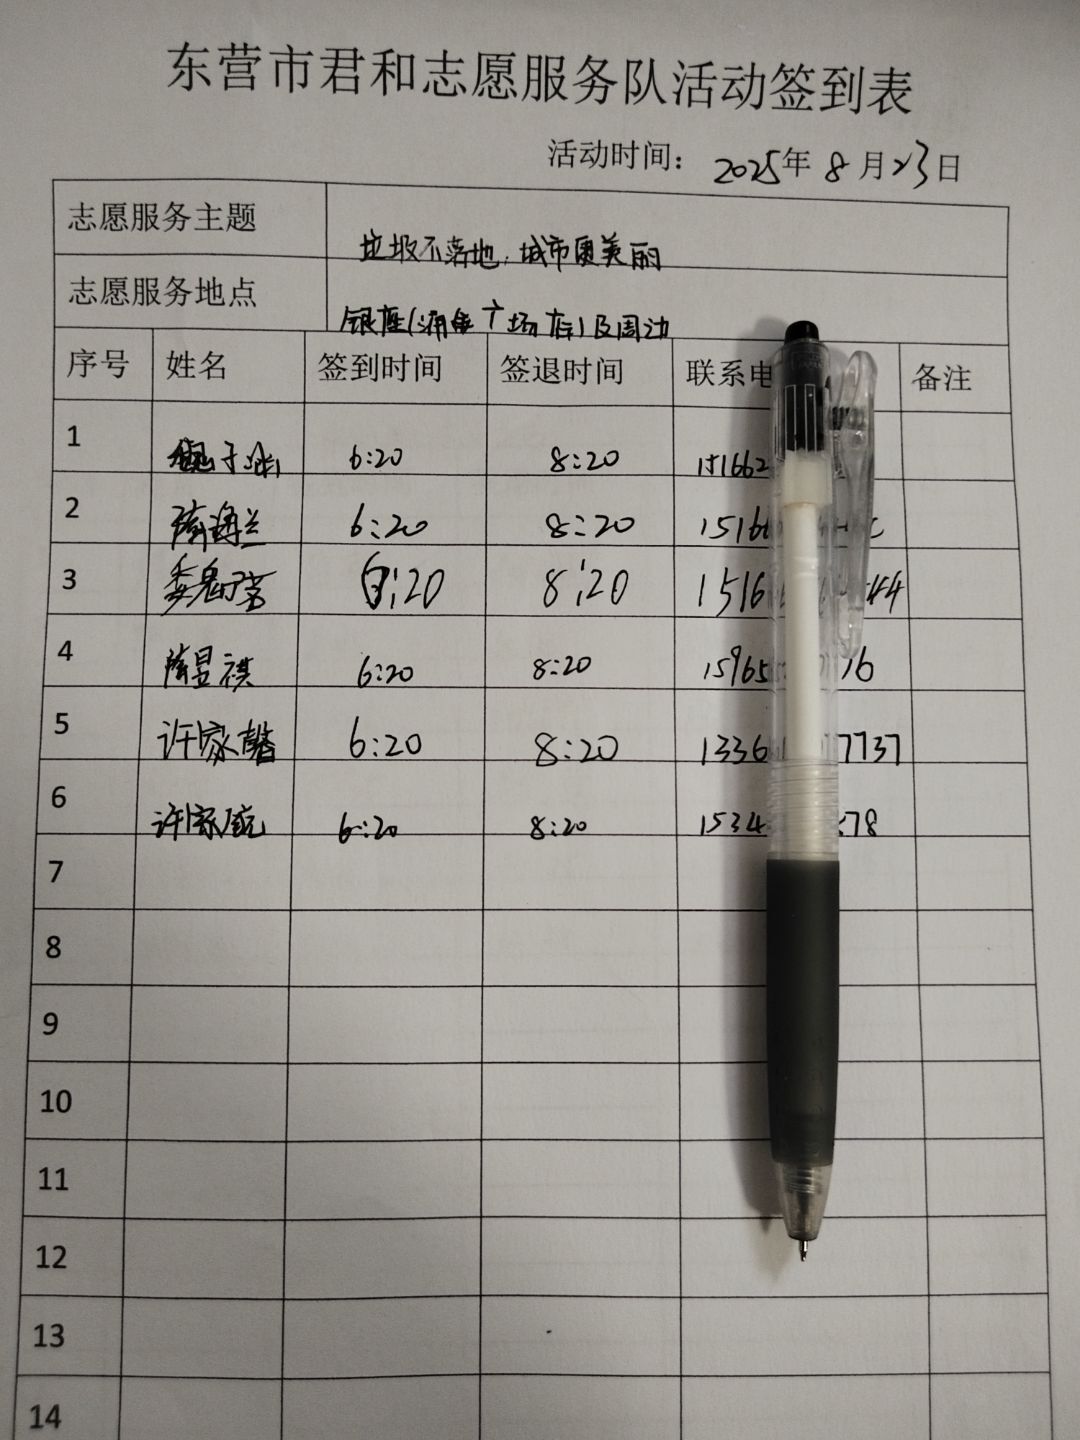 东营市君和志愿服务队活动签到表
活动时间：2025年8月23日
志愿服务主题 垃圾不落地，城市更美丽
志愿服务地点 银座(涌金广场店)及周边
序号 姓名 签到时间 签退时间 联系电 备注
1 6:20 8:20 151662
2 隋海兰 6:20 8:20 1516
3 6:20 8:20 1516 44
4 隋昱祺 6:20 8:20 15965 76
5 许家馨 6:20 8:20 1336 7737
6 许家 6:20 8:20 1534 78
7
8
9
10
11
12
13
14